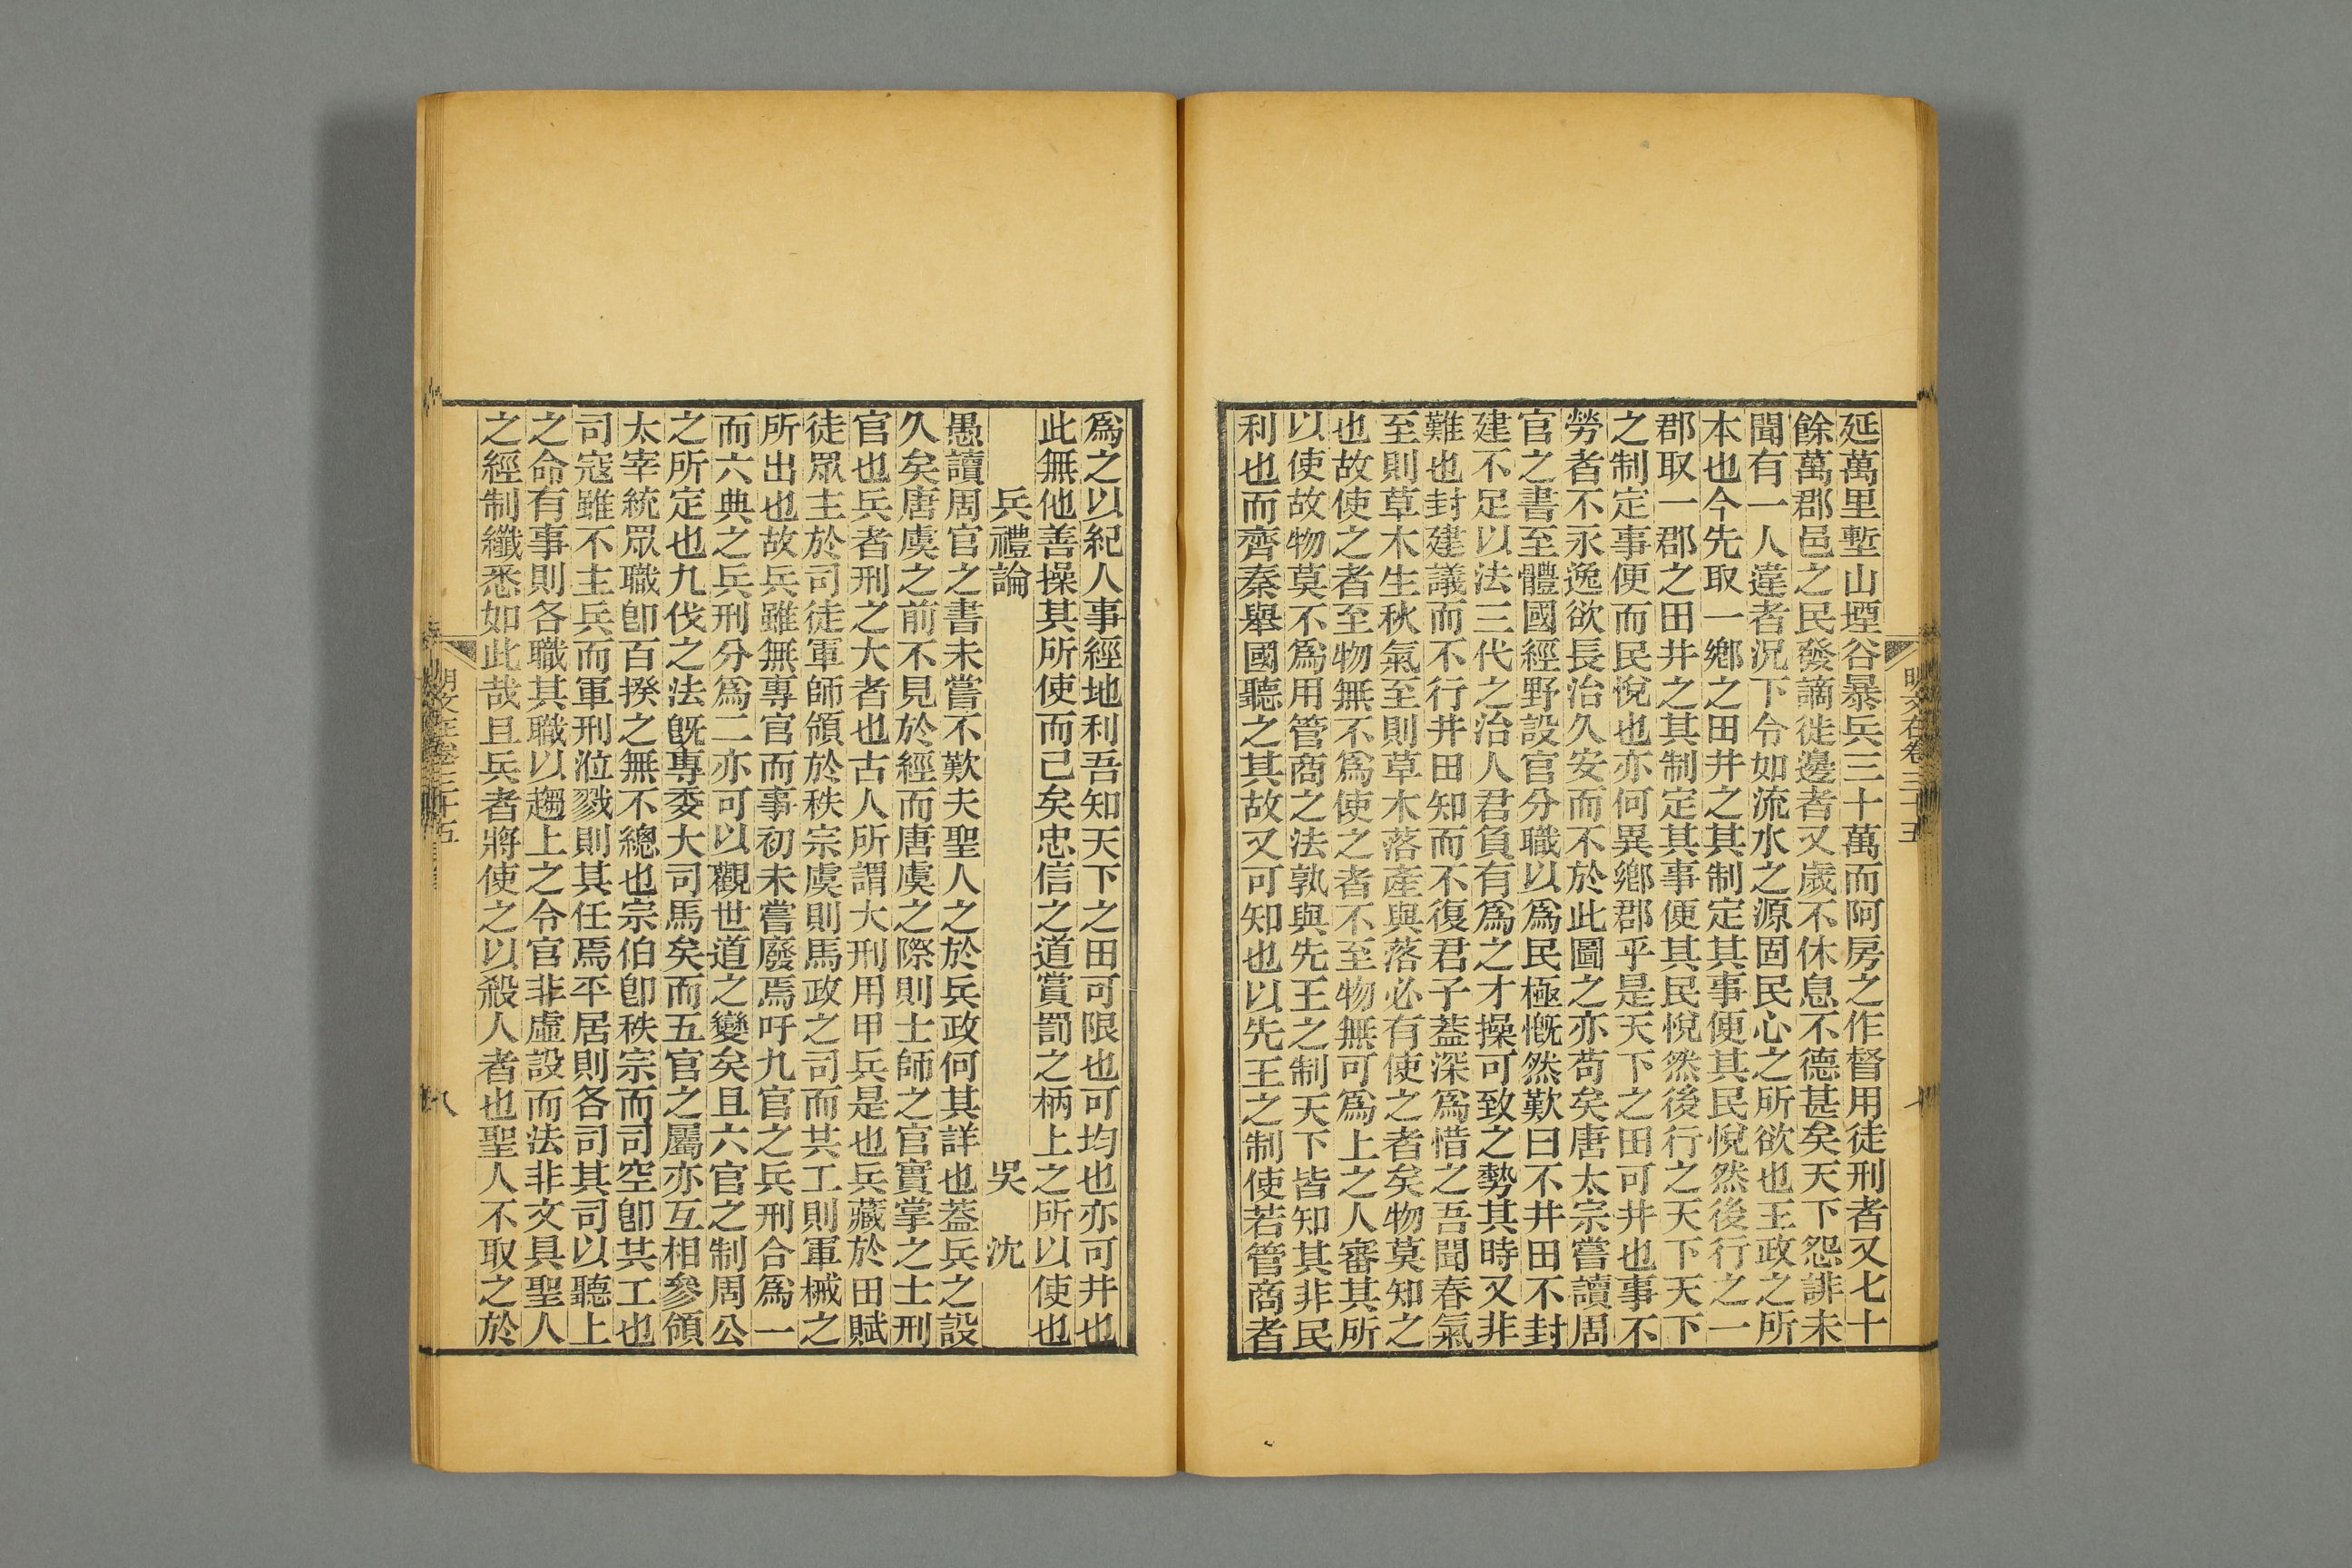 延萬里塹山堙谷暴兵三十萬而阿房之作督用徒刑者又七十
餘萬郡邑之民發謫徙邊者又歲不休息不德甚矣天下怨誹未
聞有一人違者況下令如流水之源固民心之所欲也王政之所
本也今先取一鄕之田井之其制定其事便其民悅然後行之一
郡取一郡之田井之其制定其事便其民悅然後行之天下天下
之制定事便而民悅也亦何異鄕郡乎是天下之田可井也事不
勞者不永逸欲長治久安而不於此圖之亦苟矣唐太宗嘗讀周
官之書至體國經野設官分職以爲民極慨然歎曰不井田不封
建不足以法三代之治人君負有爲之才操可致之勢其時又非
難也封建議而不行井田知而不復君子葢深爲惜之吾聞春氣
至則草木生秋氣至則草木落產與落必有使之者矣物莫知之
也故使之者至物無不爲使之者不至物無可爲上之人審其所
以使故物莫不爲用管商之法孰與先王之制天下皆知其非民
利也而齊秦舉國聽之其故又可知也以先王之制使若管商者
明文在卷三十五
七
爲之以紀人事經地利吾知天下之田可限也可均也亦可井也
此無他善操其所使而已矣忠信之道賞罰之柄上之所以使也
兵禮論 吳沈
愚讀周官之書未嘗不歎夫聖人之於兵政何其詳也葢兵之設
久矣唐虞之前不見於經而唐虞之際則士師之官實掌之士刑
官也兵者刑之大者也古人所謂大刑用甲兵是也兵藏於田賦
徒眾主於司徒軍師領於秩宗虞則馬政之司而共工則軍械之
所出也故兵雖無專官而事初未嘗廢焉吁九官之兵刑合爲一
而六典之兵刑分爲二亦可以觀世道之變矣且六官之制周公
之所定也九伐之法旣專委大司馬矣而五官之屬亦互相參領
太宰統眾職卽百揆之無不總也宗伯卽秩宗而司空卽共工也
司寇雖不主兵而軍刑涖戮則其任焉平居則各司其司以聽上
之命有事則各職其職以趨上之令官非虛設而法非文具聖人
之經制纖悉如此哉且兵者將使之以殺人者也聖人不取之於
明文在卷三十五
八